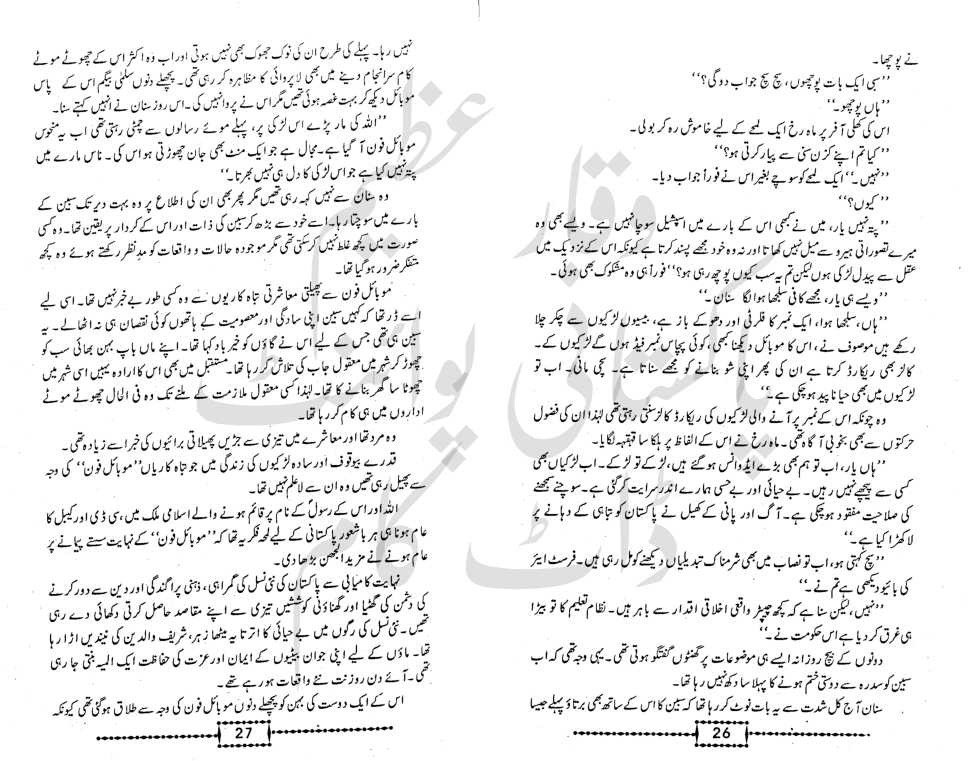 نے پوچھا۔
’’سبی ایک بات پوچھوں، سچ سچ جواب دو گی؟‘‘
’’ہاں پوچھو۔‘‘
اس کی کھلی آفر پر ماہ رخ ایک لمحے کے لیے خاموش رہ کر بولی۔
’’کیا تم اپنے کزن سنی سے پیار کرتی ہو؟‘‘
’’نہیں۔‘‘ ایک لمحے کو سوچے بغیر اس نے فوراً جواب دیا۔
’’کیوں؟‘‘
’’پتہ نہیں یار، میں نے کبھی اس کے بارے میں اسپیشل سوچا نہیں ہے۔ ویسے بھی وہ
میرے تصوراتی ہیرو سے میل نہیں کھاتا اور نہ وہ خود مجھے پسند کرتا ہے کیونکہ اس کے نزدیک میں
عقل سے پیدل لڑکی ہوں لیکن تم یہ سب کیوں پوچھ رہی ہو؟‘‘ فوراً ہی وہ مشکوک بھی ہوئی۔
’’ویسے ہی یار، مجھے کافی سلجھا ہوا لگا سنان۔‘‘
’’ہاں، سلجھا ہوا، ایک نمبر کا فلرٹی اور دھوکے باز ہے، بیسیوں لڑکیوں سے چکر چلا
رکھے ہیں موصوف نے، اس کا موبائل دیکھنا کبھی، کوئی پچاس نمبر فیڈ ہوں گے لڑکیوں کے۔
کالز بھی ریکارڈ کرتا ہے ان کی پھر اپنی شو بنانے کو مجھے سناتا ہے۔ سچی مانی۔ اب تو
لڑکیوں میں بھی حیا ناپید ہو چکی ہے۔‘‘
وہ چونکہ اس کے نمبر پر آنے والی لڑکیوں کی ریکارڈ کالز سنتی رہتی تھی لہٰذا ان کی فضول
حرکتوں سے بھی بخوبی آگاہ تھی۔ ماہ رخ نے اس کے الفاظ پر ہلکا سا قہقہہ لگایا۔
’’ہاں یار، اب تو ہم بھی بڑے ایڈوانس ہو گئے ہیں، لڑکے تو لڑکے۔ اب لڑکیاں بھی
کسی سے پیچھے نہیں رہیں۔ بے حیائی اور بے حسی ہمارے اندر سرایت کر گئی ہے۔ سوچنے سمجھنے
کی صلاحیت مفقود ہو چکی ہے۔ آگ اور پانی کے کھیل نے پاکستان کو تباہی کے دہانے پر
لا کھڑا کیا ہے۔‘‘
’’سچ کہتی ہو، اب تو نصاب میں بھی شرمناک تبدیلیاں دیکھنے کو مل رہی ہیں۔ فرسٹ ایئر
کی بائیو دیکھی ہے تم نے۔‘‘
’’نہیں، لیکن سنا ہے کہ کچھ چیپٹر واقعی اخلاقی اقدار سے باہر ہیں۔ نظام تعلیم کا تو بیڑا
ہی غرق کر دیا ہے اس حکومت نے۔‘‘
دونوں کے بیچ روزانہ ایسے ہی موضوعات پر گھنٹوں گفتگو ہوتی تھی۔ یہی وجہ تھی کہ اب
سبین کو سدرہ سے دوستی ختم ہونے کا پہلا سا دکھ نہیں رہا تھا۔
سنان آج کل شدت سے یہ بات نوٹ کر رہا تھا کہ سبین کا اس کے ساتھ بھی برتاؤ پہلے جیسا
26
نہیں رہا۔ پہلے کی طرح ان کی نوک جھوک بھی نہیں ہوتی اور اب وہ اکثر اس کے چھوٹے موٹے
کام سرانجام دینے میں بھی لاپروائی کا مظاہرہ کر رہی تھی۔ پچھلے دنوں سلمٰی بیگم اس کے پاس
موبائل دیکھ کر بہت غصہ ہوئی تھیں مگر اس نے پروا نہیں کی۔ اس روز سنان نے انہیں کہتے سنا۔
’’اللہ کی مار پڑے اس لڑکی پر، پہلے موئے رسالوں سے چمٹی رہتی تھی اب یہ منحوس
موبائل فون آ گیا ہے۔ مجال ہے جو ایک منٹ بھی جان چھوڑتی ہو اس کی۔ ناس مارے میں
پتہ نہیں کیا ہے جو اس لڑکی کا دل ہی نہیں بھرتا۔‘‘
وہ سنان سے نہیں کہہ رہی تھیں مگر پھر بھی ان کی اطلاع پر وہ بہت دیر تک سبین کے
بارے میں سوچتا رہا۔ اسے خود سے بڑھ کر سبین کی ذات اور اس کے کردار پر یقین تھا۔ وہ کسی
صورت میں کچھ غلط نہیں کر سکتی تھی مگر موجودہ حالات و واقعات کو مدنظر رکھتے ہوئے وہ کچھ
متفکر ضرور ہو گیا تھا۔
موبائل فون سے پھیلتی معاشرتی تباہ کاریوں سے وہ کسی طور بے خبر نہیں تھا۔ اسی لیے
اسے ڈر تھا کہ کہیں سبین اپنی سادگی اور معصومیت کے ہاتھوں کوئی نقصان ہی نہ اٹھا لے۔ یہ
سبین ہی تھی جس کے لیے اس نے گاؤں کو خیر باد کہا تھا۔ اپنے ماں باپ بہن بھائی سب کو
چھوڑ کر شہر میں معقول جاب کی تلاش کر رہا تھا۔ مستقبل میں بھی اس کا ارادہ یہیں اسی شہر میں
چھوٹا سا گھر بنانے کا تھا۔ لہٰذا کسی معقول ملازمت کے ملنے تک وہ فی الحال چھوٹے موٹے
اداروں میں ہی کام کر رہا تھا۔
وہ مرد تھا اور معاشرے میں تیزی سے جڑیں پھیلاتی برائیوں کی خبر اسے زیادہ تھی۔
قدرے بیوقوف اور سادہ لڑکیوں کی زندگی میں جو تباہ کاریاں ’’موبائل فون‘‘ کی وجہ
سے پھیل رہی تھیں وہ ان سے لاعلم نہیں تھا۔
اللہ اور اس کے رسولؐ کے نام پر قائم ہونے والے اسلامی ملک میں، سی ڈی اور کیبل کا
عام ہونا ہی ہر باشعور پاکستانی کے لیے لمحہ فکریہ تھا کہ ’’موبائل فون‘‘ کے نہایت سستے پیمانے پر
عام ہونے نے مزید الجھن بڑھا دی۔
نہایت کامیابی سے پاکستان کی نئی نسل کی گمراہی، ذہنی پراگندگی اور دین سے دور کرنے
کی دشمن کی گھٹیا اور گھناؤنی کوششیں تیزی سے اپنے مقاصد حاصل کرتی دکھائی دے رہی
تھیں۔ نئی نسل کی رگوں میں بے حیائی کا اترتا یہ میٹھا زہر، شریف والدین کی نیندیں اڑا رہا
تھا۔ ماؤں کے لیے اپنی جوان بیٹیوں کے ایمان اور عزت کی حفاظت ایک المیہ بنتی جا رہی
تھی۔ آئے دن روز نت نئے واقعات ہو رہے تھے۔
اس کے ایک دوست کی بہن کو پچھلے دنوں موبائل فون کی وجہ سے طلاق ہو گئی تھی کیونکہ
27